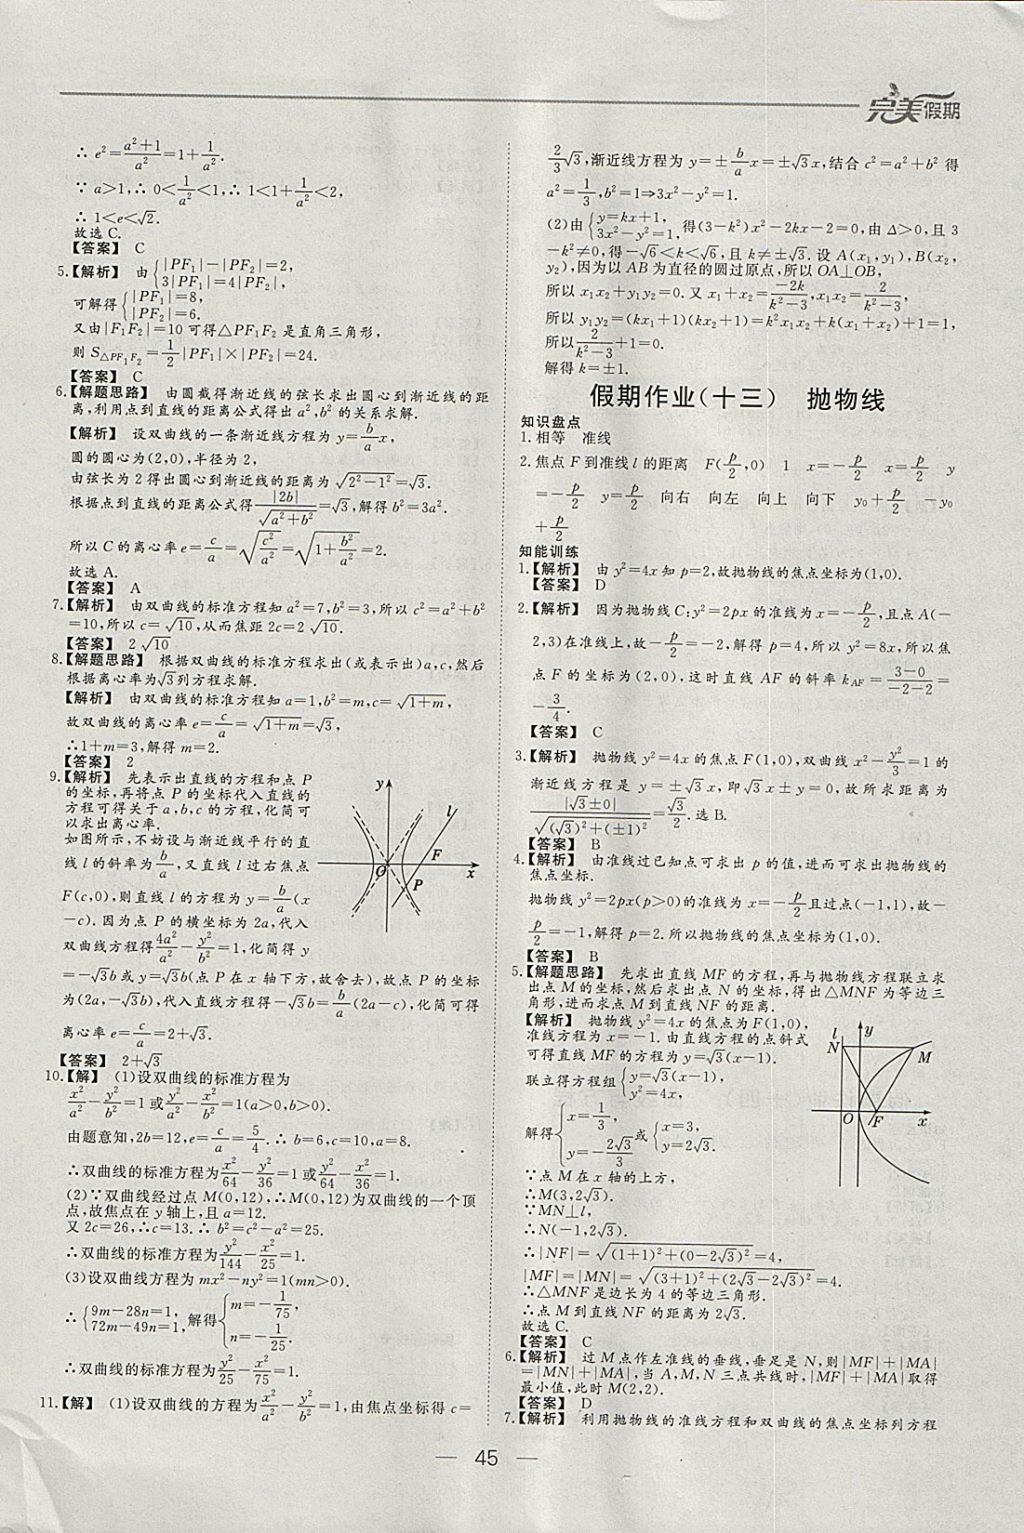 完美假期
∴ e²=(a²+1)/a²=1+1/a².
∵ a>1,∴ 0<1/a²<1,∴ 1<1+1/a²<2,
∴ 1<e<√2.
故选C.
【答案】 C
5.【解析】 由{|PF₁|-|PF₂|=2, 3|PF₁|=4|PF₂|,
可解得{|PF₁|=8, |PF₂|=6.
又由|F₁F₂|=10可得△PF₁F₂是直角三角形,
则S△PF₁F₂=1/2|PF₁|×|PF₂|=24.
【答案】 C
6.【解题思路】 由圆截得渐近线的弦长求出圆心到渐近线的距
离,利用点到直线的距离公式得出a²,b²的关系求解.
【解析】 设双曲线的一条渐近线方程为y=b/a x,
圆的圆心为(2,0),半径为2,
由弦长为2得出圆心到渐近线的距离为√(2²-1²)=√3.
根据点到直线的距离公式得|2b|/√(a²+b²)=√3,解得b²=3a².
所以C的离心率e=c/a=√(c²/a²)=√(1+b²/a²)=2.
故选A.
【答案】 A
7.【解析】 由双曲线的标准方程知a²=7,b²=3,所以c²=a²+b²
=10,所以c=√10,从而焦距2c=2√10.
【答案】 2√10
8.【解题思路】 根据双曲线的标准方程求出(或表示出)a,c,然后
根据离心率为√3列方程求解.
【解析】 由双曲线的标准方程知a=1,b²=m,c=√(1+m),
故双曲线的离心率e=c/a=√(1+m)=√3,
∴1+m=3,解得m=2.
【答案】 2
9.【解析】 先表示出直线的方程和点P
的坐标,再将点P的坐标代入直线的
方程可得关于a,b,c的方程,化简可
以求出离心率.
如图所示,不妨设与渐近线平行的直
线l的斜率为b/a,又直线l过右焦点
F(c,0),则直线l的方程为y=b/a(x
-c).因为点P的横坐标为2a,代入
双曲线方程得4a²/a²-y²/b²=1,化简得y
=-√3b或y=√3b(点P在x轴下方,故舍去),故点P的坐标
为(2a,-√3b),代入直线方程得-√3b=b/a(2a-c),化简可得
离心率e=c/a=2+√3.
y
l
O
F
P
x
【答案】 2+√3
10.【解】 (1)设双曲线的标准方程为
x²/a²-y²/b²=1或y²/a²-x²/b²=1(a>0,b>0).
由题意知,2b=12,e=c/a=5/4.∴ b=6,c=10,a=8.
∴双曲线的标准方程为x²/64-y²/36=1或y²/64-x²/36=1.
(2)∵双曲线经过点M(0,12),∴M(0,12)为双曲线的一个顶
点,故焦点在y轴上,且a=12.
又2c=26,∴c=13.∴ b²=c²-a²=25.
∴双曲线的标准方程为y²/144-x²/25=1.
(3)设双曲线方程为mx²-ny²=1(mn>0).
∴{9m-28n=1, 72m-49n=1,解得{m=-1/75, n=-1/25.
∴双曲线的标准方程为y²/25-x²/75=1.
11.【解】 (1)设双曲线的方程为x²/a²-y²/b²=1,由焦点坐标得c=
2/3√3,渐近线方程为y=±b/a x=±√3x,结合c²=a²+b²得
a²=1/3,b²=1⇒3x²-y²=1.
(2)由{y=kx+1, 3x²-y²=1.得(3-k²)x²-2kx-2=0,由Δ>0,且3
-k²≠0,得-√6<k<√6,且k≠±√3.设A(x₁,y₁),B(x₂,
y₂),因为以AB为直径的圆过原点,所以OA⊥OB,
所以x₁x₂+y₁y₂=0.又x₁+x₂=-2k/(k²-3),x₁x₂=2/(k²-3),
所以y₁y₂=(kx₁+1)(kx₂+1)=k²x₁x₂+k(x₁+x₂)+1=1,
所以2/(k²-3)+1=0.
解得k=±1.
假期作业(十三) 抛物线
知识盘点
1.相等 准线
2.焦点F到准线l的距离 F(p/2,0) 1 x=-p/2 x=p/2 y
=-p/2 y=p/2 向右 向左 向上 向下 y₀+p/2 -y₀
+p/2
知能训练
1.【解析】 由y²=4x知p=2,故抛物线的焦点坐标为(1,0).
【答案】 D
2.【解析】 因为抛物线C:y²=2px的准线为x=-p/2,且点A(-
2,3)在准线上,故-p/2=-2,解得p=4,所以y²=8x,所以焦
点F的坐标为(2,0),这时直线AF的斜率k_AF=(3-0)/(-2-2)=
-3/4.
【答案】 C
3.【解析】 抛物线y²=4x的焦点F(1,0),双曲线x²-y²/3=1的
渐近线方程是y=±√3x,即√3x±y=0,故所求距离为
|√3±0|/√((√3)²+(±1)²)=√3/2.选B.
【答案】 B
4.【解析】 由准线过已知点可求出p的值,进而可求出抛物线的
焦点坐标.
抛物线y²=2px(p>0)的准线为x=-p/2且过点(-1,1),故-
p/2=-1,解得p=2.所以抛物线的焦点坐标为(1,0).
【答案】 B
5.【解题思路】 先求出直线MF的方程,再与抛物线方程联立求
出点M的坐标,然后求出点N的坐标,得出△MNF为等边三
角形,进而求点M到直线NF的距离.
【解析】 抛物线y²=4x的焦点为F(1,0),
准线方程为x=-1.由直线方程的点斜式
可得直线MF的方程为y=√3(x-1).
联立得方程组{y=√3(x-1), y²=4x.
解得{x=1/3, y=-2√3/3或{x=3, y=2√3.
∵点M在x轴的上方,
∴M(3,2√3).
∵MN⊥l,
∴N(-1,2√3).
∴|NF|=√((1+1)²+(0-2√3)²)=4,
|MF|=|MN|=√((3+1)²+(2√3-2√3)²)=4.
∴△MNF是边长为4的等边三角形.
∴点M到直线NF的距离为2√3.
故选C.
l
y
N
M
O
F
x
【答案】 C
6.【解析】 过M点作左准线的垂线,垂足是N,则|MF|+|MA|
=|MN|+|MA|,当A,M,N三点共线时,|MF|+|MA|取得
最小值,此时M(2,2).
【答案】 D
7.【解析】 利用抛物线的准线方程和双曲线的焦点坐标列方程
— 45 —